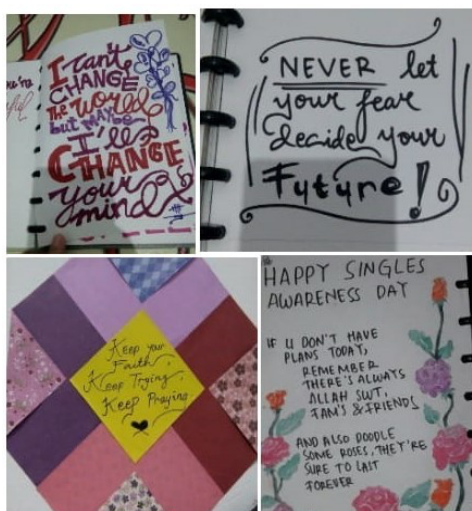 I can't
CHANGE
the world
but maybe
I'll
CHANGE
your
mind
NEVER let
your fear
decide your
Future!
Keep your
Faith,
Keep Trying,
Keep Praying
HAPPY SINGLES
AWARENESS DAY
IF U DON'T HAVE
PLANS TODAY,
REMEMBER
THERE'S ALWAYS
ALLAH SWT,
FAM'S & FRIENDS
AND ALSO DOODLE
SOME ROSES, THEY'RE
SURE TO LAST
FOREVER